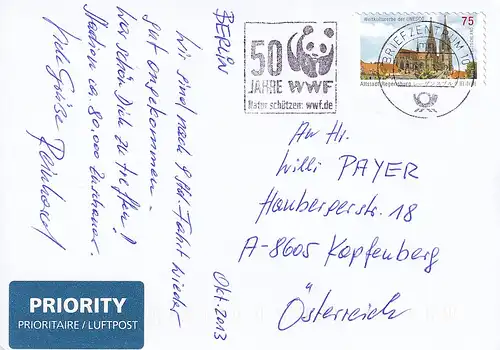 BERLIN
Okt. 2013
Wir sind nach 9 Std. Fahrt wieder
gut angekommen -
war schön Dich zu treffen!
Stadion ca. 80.000 Zuschauer.
Viele Grüße Reinhard
50
JAHRE WWF
Natur schützen: wwf.de
Weltkulturerbe der UNESCO
75
Altstadt Regensburg
BRIEFZENTRUM 10
An Hr.
Willi PAYER
Haubergerstr. 18
A-8605 Kapfenberg
Österreich
PRIORITY
PRIORITAIRE / LUFTPOST